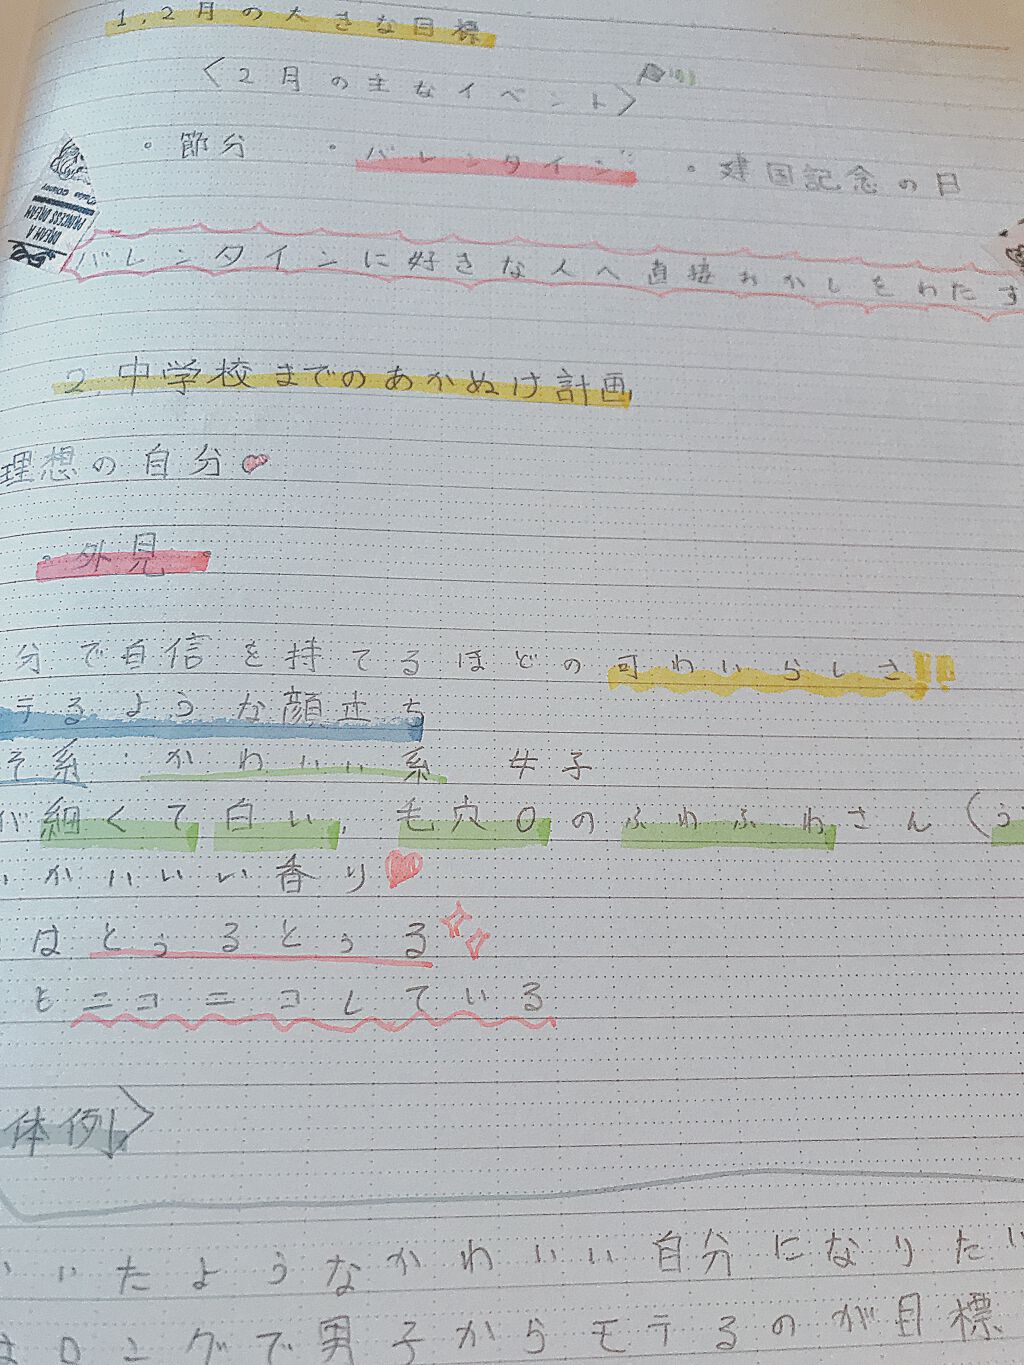 1.2月の大きな目標
〈2月の主なイベント〉
・節分 ・バレンタイン ・建国記念の日
DREAM A
PRINCESS DREAM
バレンタインに好きな人へ直接おかしをわたす
2.中学校までのあかぬけ計画
理想の自分
・外見
分で自信を持てるほどの可わいらしさ!!
テるような顔立ち
そ系・かわいい系 女子
が細くて白い、毛穴0のふわふわさん(う
いい香り
はとぅるとぅる
もニコニコしている
体例〉
いたようなかわいい自分になりたい
はロングで男子からモテるのが目標